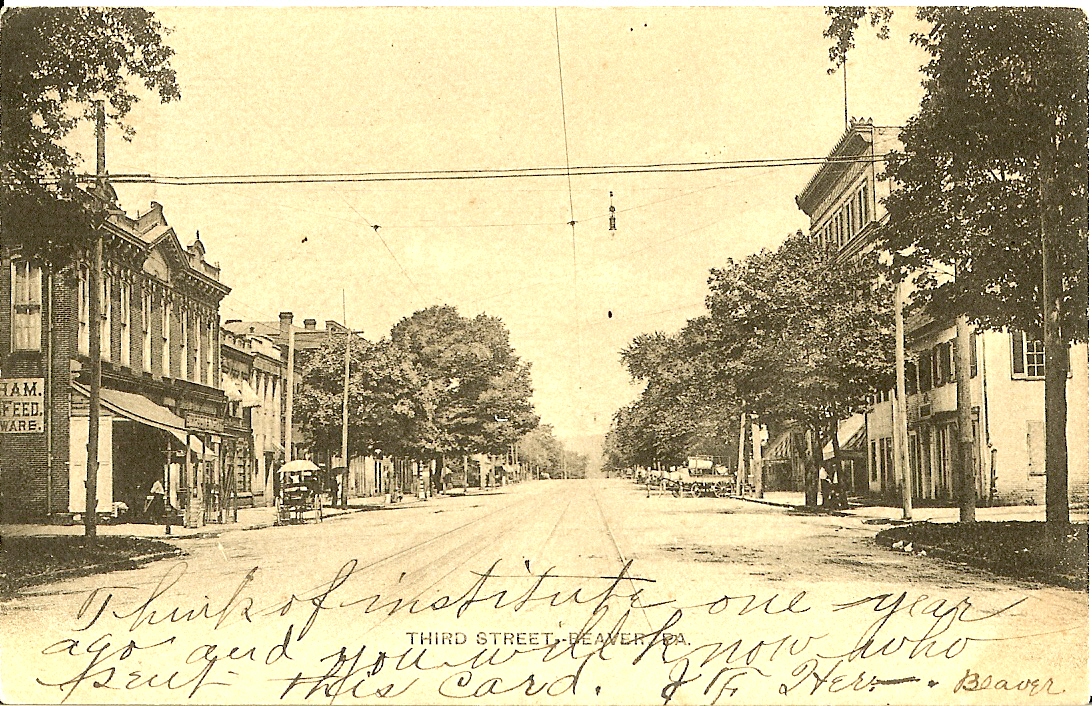 HAM.
FEED.
WARE.
THIRD STREET, BEAVER, PA.
Think of institute one year
ago and you will know who
sent this card. J F Herr.
Beaver.